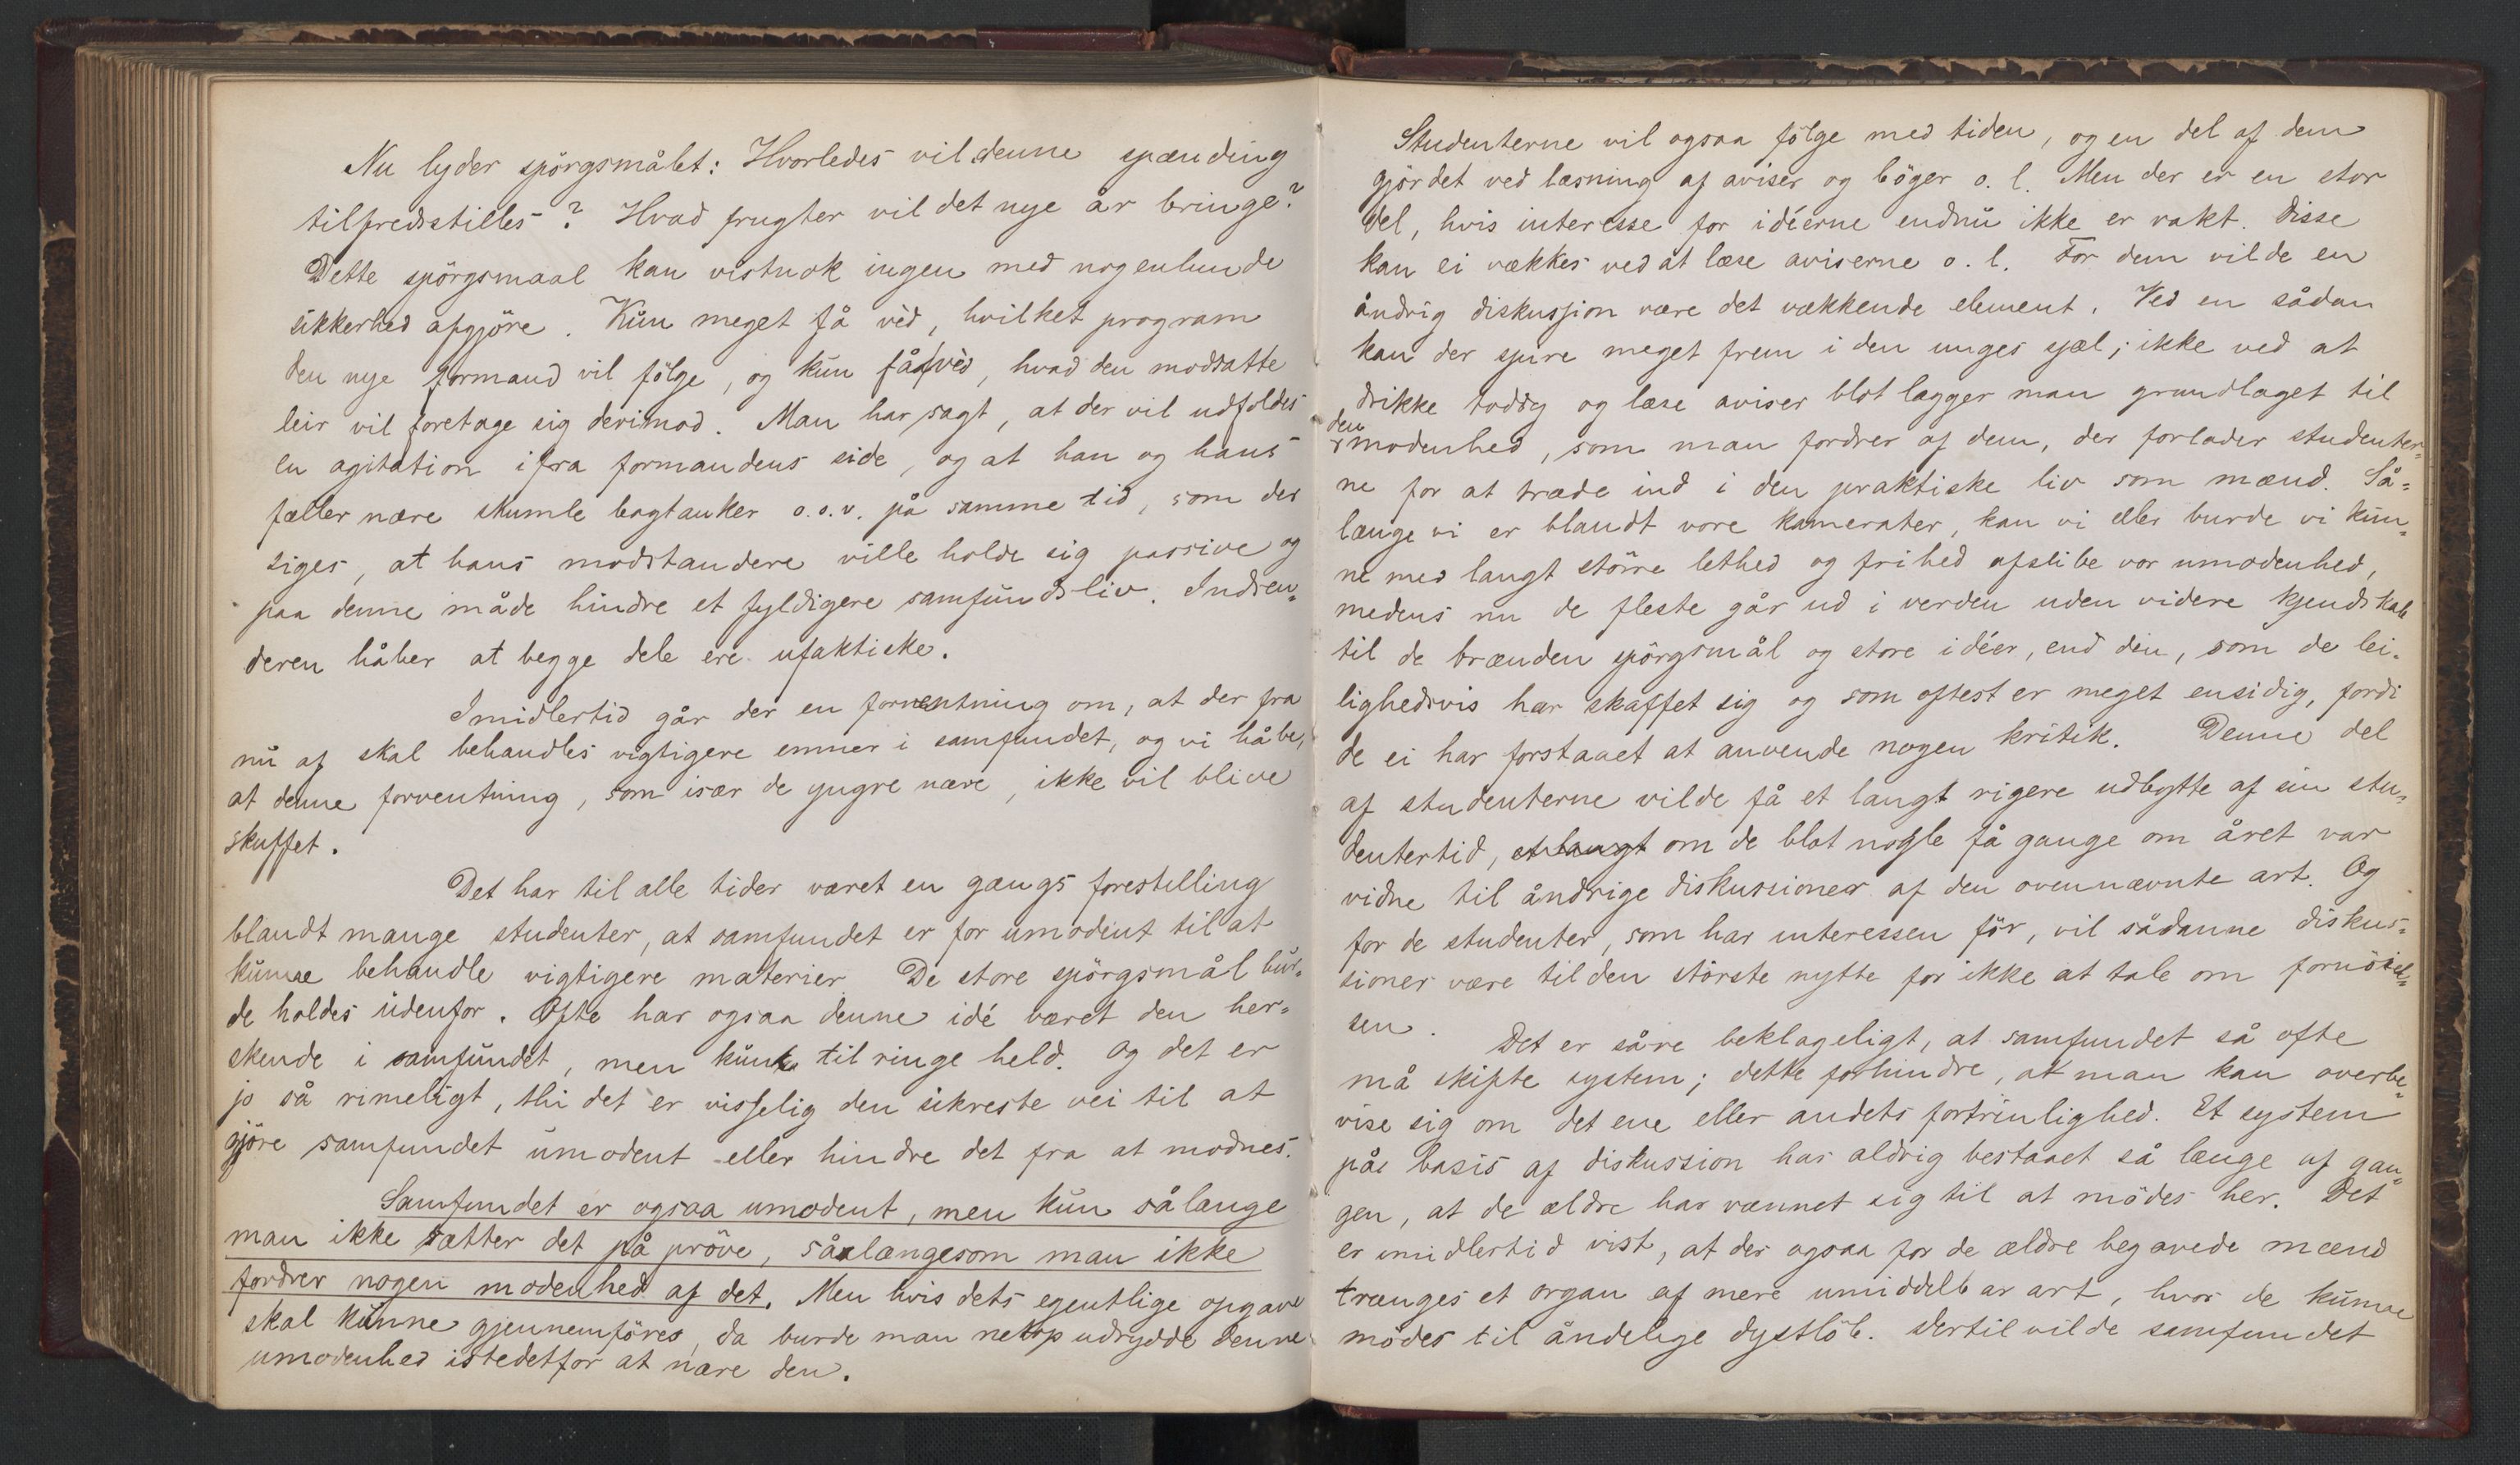 Nu lyder spörgsmålet: Hvorledes vil denne spænding
tilfredsstilles? Hvad frugter vil det nye år bringe?
Dette spörgsmaal kan vistnok ingen med nogenlunde
sikkerhed afgjöre. Kun meget få véd, hvilket program
den nye formand vil fölge, og kun få véd, hvad den modsatte
leir vil foretage sig derimod. Man har sagt, at der vil udfoldes
en agitation ifra formandens side, og at han og hans
fæller nære skumle bagtanker o.s.v. på samme tid, som der
siges, at hans modstandere ville holde sig passive og
paa denne måde hindre et fyldigere samfundsliv. Indsen-
deren håber at begge dele ere ufaktiske.
Imidlertid går der en forventning om, at der fra
nu af skal behandles vigtigere emner i samfundet, og vi håbe,
at denne forventning, som især de yngre nære, ikke vil blive
skuffet.
Det har til alle tider været en gængs forestilling
blandt mange studenter, at samfundet er for umodent til at
kunne behandle vigtigere materier. De store spörgsmål bur-
de holdes udenfor. Ofte har ogsaa denne idé været den her-
skende i samfundet, men kun til ringe held. Og det er
jo så rimeligt, thi det er visselig den sikreste vei til at
gjöre samfundet umodent eller hindre det fra at modnes.
Samfundet er ogsaa umodent, men kun sålænge
man ikke sætter det på pröve, sålængesom man ikke
fordrer nogen modenhed af det. Men hvis dets egentlige opgave
skal kunne gjennemföres, da burde man netop udrydde denne
umodenhed istedetfor at nære den.
Studenterne vil ogsaa fölge med tiden, og en del af dem
gjör det ved læsning af aviser og böger o. l. Men der er en stor
del, hvis interesse for idéerne endnu ikke er vakt. Disse
kan ei vækkes ved at læse aviserne o. l. For dem vilde en
åndrig diskussion være det vækkende element. Ved en sådan
kan der spire meget frem i den unges sjæl; ikke ved at
drikke toddy og læse aviser blot lægger man grundlaget til
den modenhed, som man fordrer af dem, der forlader studenter-
ne for at træde ind i den praktiske liv som mænd. Så-
længe vi er blandt vore kamerater, kan vi eller burde vi kun-
ne med langt större lethed og frihed afslibe vor umodenhed,
medens nu de fleste går ud i verden uden videre kjendskab
til de brænden spörgsmål og store idéer, end den, som de lei-
lighedsvis har skaffet sig og som oftest er meget ensidig, fordi
de ei har forstaaet at anvende nogen kritik. Denne del
af studenterne vilde få et langt rigere udbytte af sin stu-
dentertid, et langt om de blot nogle få gange om året var
vidne til åndrige diskussioner af den ovennævnte art. Og
for de studenter, som har interessen för, vil sådanne diskus-
sioner være til den störste nytte for ikke at tale om fornöiel-
sen.
Det er såre beklageligt, at samfundet så ofte
må skifte system; dette forhindre, at man kan overbe-
vise sig om det ene eller andets fortrinlighed. Et system
på basis af diskussion har aldrig bestaaet så længe af gan-
gen, at de ældre har vænnet sig til at mödes her. Det
er imidlertid vist, at der ogsaa for de ældre begavede mænd
trænges et organ af mere umiddelbar art, hvor de kunne
mödes til åndelige dystlöb. Dertil vilde samfundet